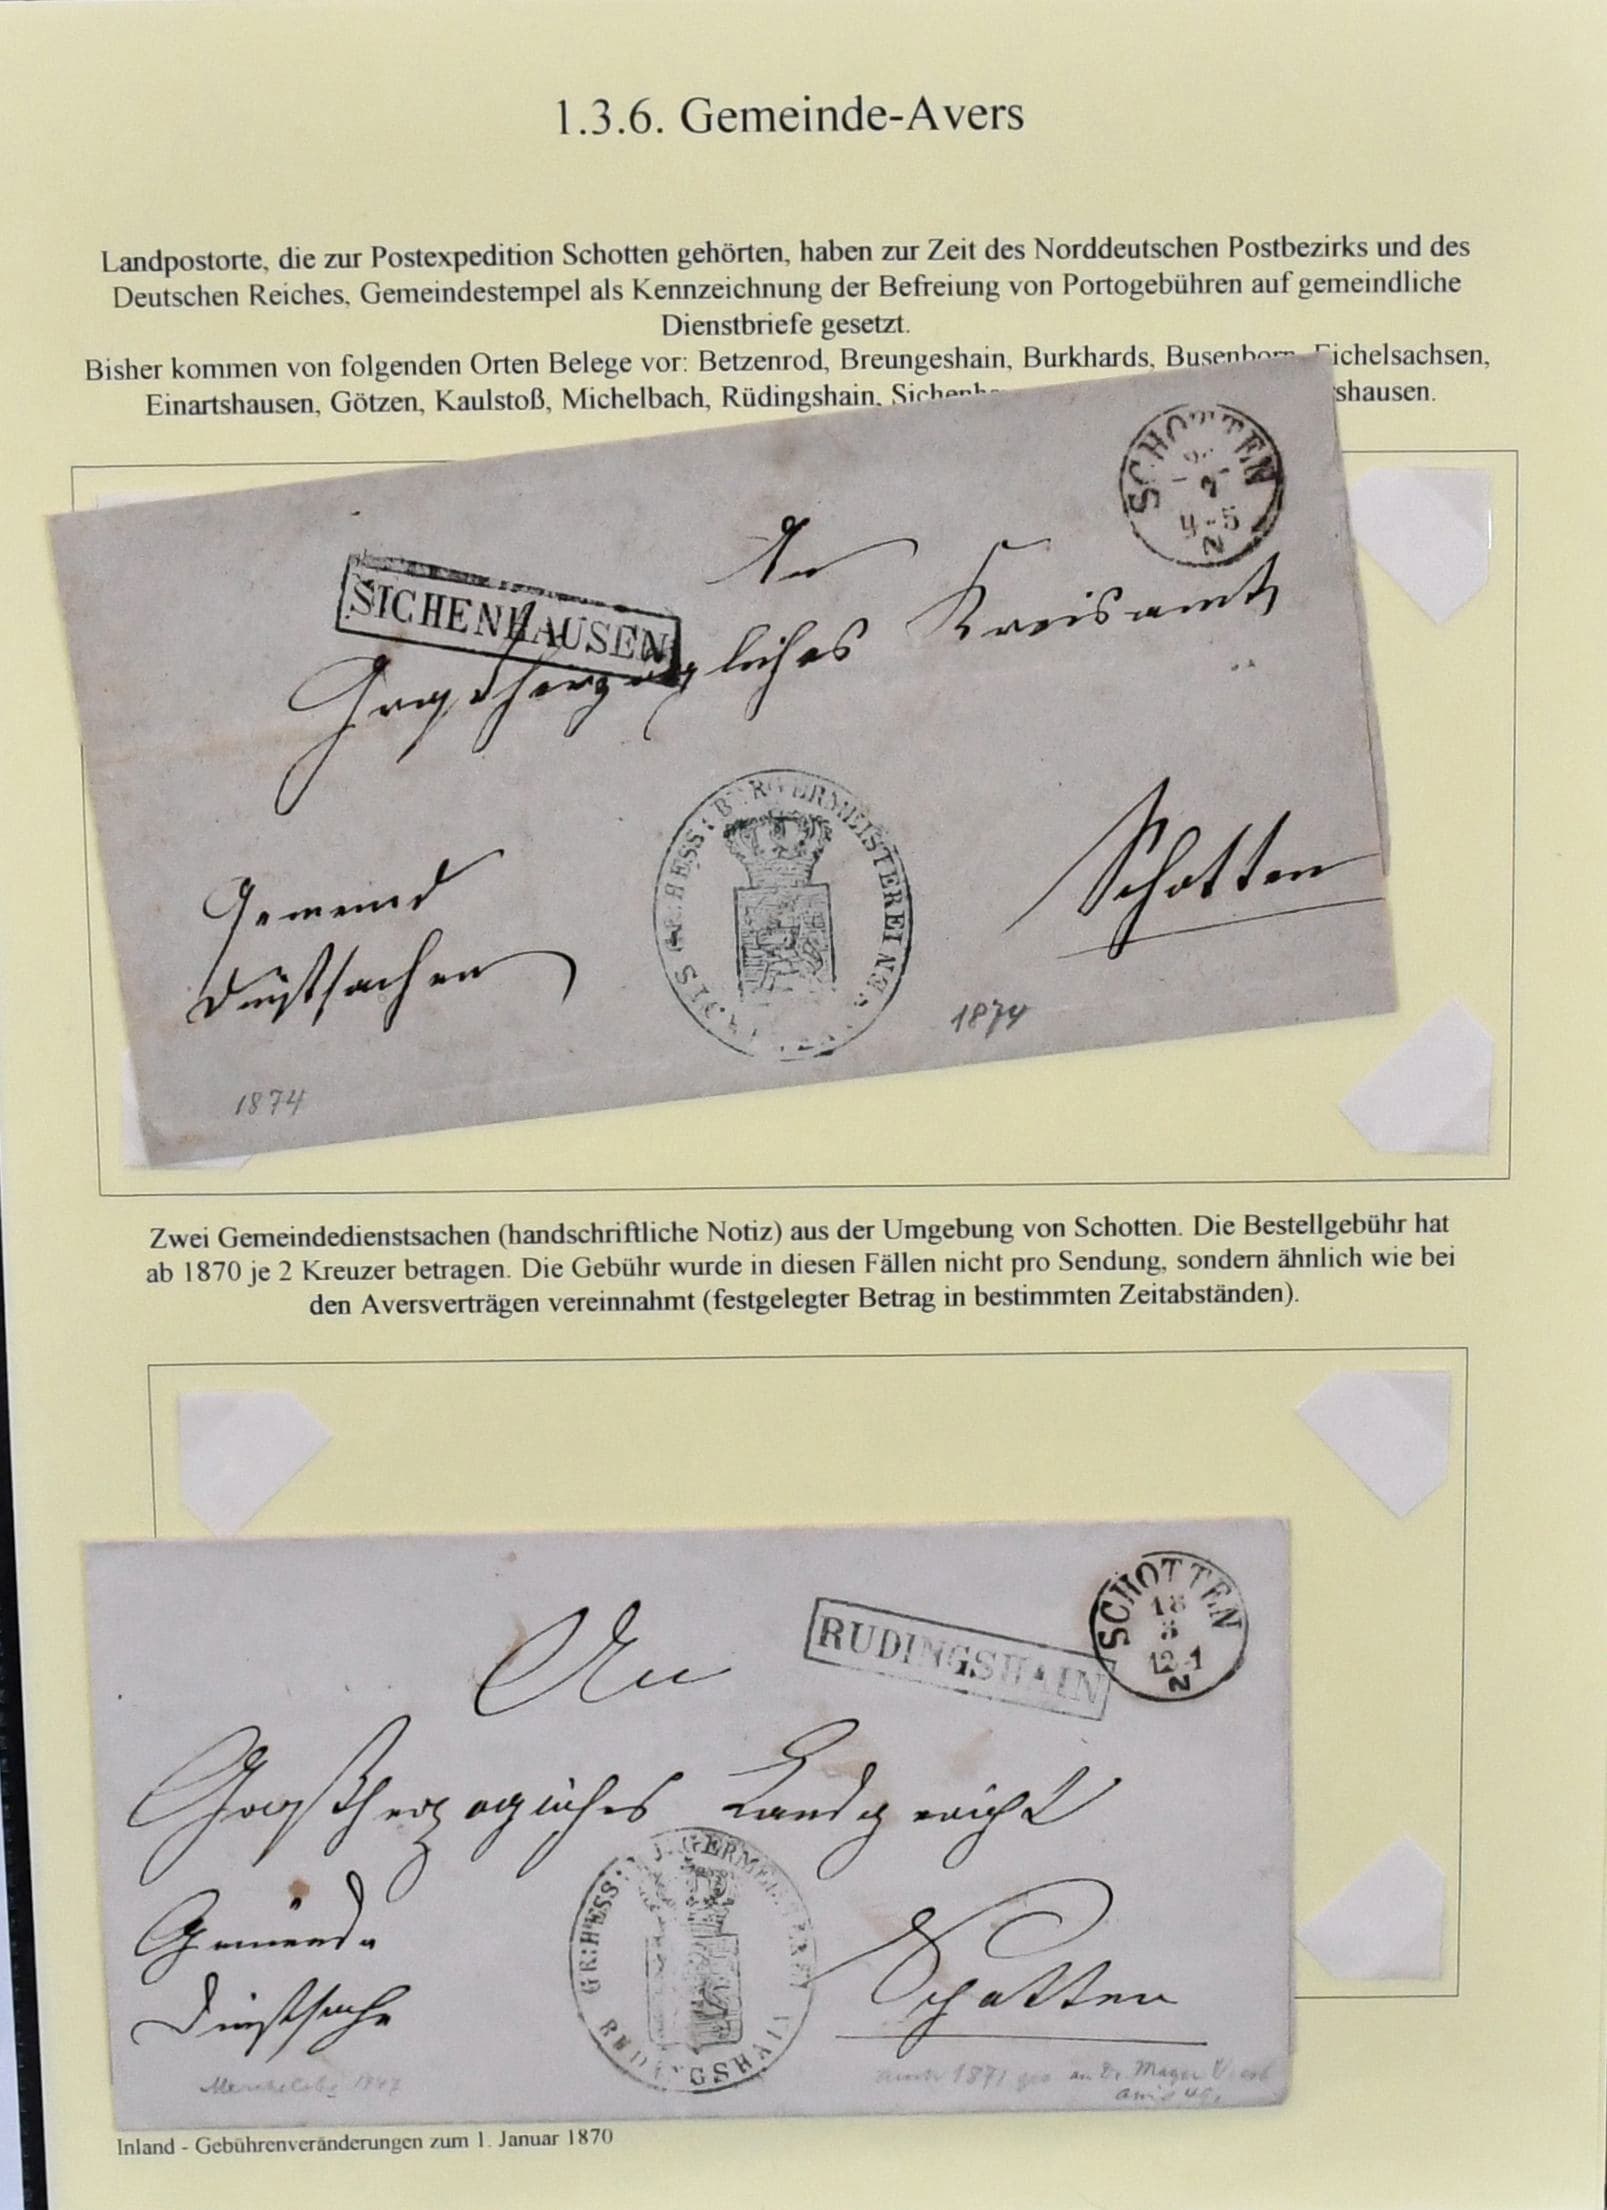 1.3.6. Gemeinde-Avers
Landpostorte, die zur Postexpedition Schotten gehörten, haben zur Zeit des Norddeutschen Postbezirks und des
Deutschen Reiches, Gemeindestempel als Kennzeichnung der Befreiung von Portogebühren auf gemeindliche
Dienstbriefe gesetzt.
Bisher kommen von folgenden Orten Belege vor: Betzenrod, Breungeshain, Burkhards, Busenborn, Eichelsachsen,
Einartshausen, Götzen, Kaulstoß, Michelbach, Rüdingshain, shausen.
SCHOTTEN
2
4-5
N
SICHENHAUSEN
An
Großherzogliches Kreisamt
GR: HESS: BÜRGERMEISTEREI
Schotten
Gemeind
dienstsachen
1874
1874
Zwei Gemeindedienstsachen (handschriftliche Notiz) aus der Umgebung von Schotten. Die Bestellgebühr hat
ab 1870 je 2 Kreuzer betragen. Die Gebühr wurde in diesen Fällen nicht pro Sendung, sondern ähnlich wie bei
den Aversverträgen vereinnahmt (festgelegter Betrag in bestimmten Zeitabständen).
SCHOTTEN
18
3
12-1
N
RUDINGSHAIN
An
Großherzogliches Landgericht
GR: HESS: BÜRGERMEISTEREI
RÜDINGSHAIN
Gemeinde
Dienstsache
Schotten
1871
an Dr. Mayer
Inland - Gebührenveränderungen zum 1. Januar 1870